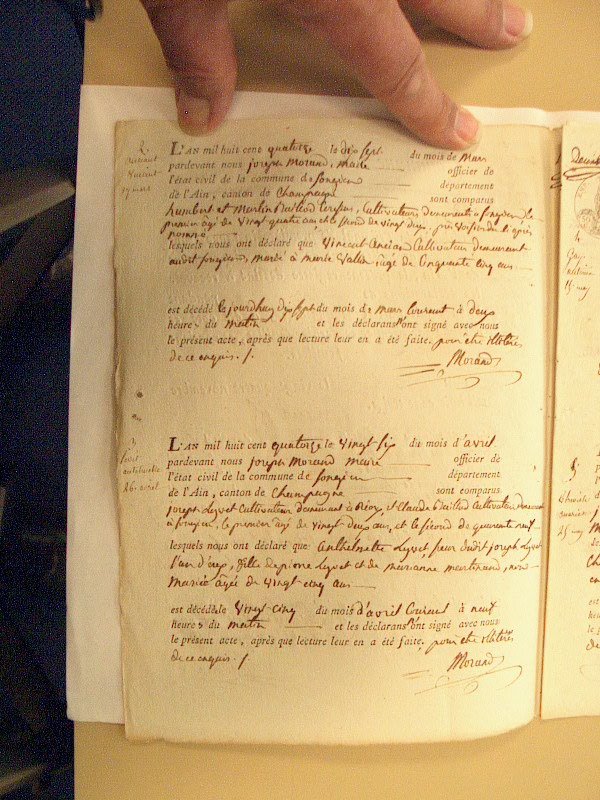 2.
L'AN mil huit cent quatorze le dix sept du mois de Mars
pardevant nous joseph Morand, Maire officier de
l'état civil de la commune de Songieu département
de l'Ain, canton de Champagne sont comparus
humbert et Martin Baillod Cultivateurs demeurant a Songieu le
premier agé de Vingt quatre ans et le second de vingt deux
lesquels nous ont déclaré que Vincent Ancian Cultivateur demeurant
audit songieu, marié a marie Valin agé de Cinquante cinq ans
est décédé cejourdhuy dix sept du mois de Mars Courant à deux
heures du Matin et les déclarans n'ont signé avec nous
le présent acte, après que lecture leur en a été faite. pour etre illiterés
de ce enquis.
Morand
3
26 avril
L'AN mil huit cent quatorze le Vingt six du mois d'avril
pardevant nous joseph Morand Maire officier de
l'état civil de la commune de Songieu département
de l'Ain, canton de Champagne sont comparus
joseph Lyvet Cultivateur demeurant à et Claude Baillod Cultivateur
a songieu, le premier agé de vingt deux ans, et le second de quarente neuf
lesquels nous ont déclaré que Anthelmette Lyvet sœur dudit joseph Lyvet
l'un d'eux, fille de pierre Lyvet et de marianne martinand, non
Mariée agée de Vingt cinq ans
est décédée le Vingt-Cinq du mois d'avril Courant à neuf
heures du matin et les déclarans n'ont signé avec nous
le présent acte, après que lecture leur en a été faite. pour etre illiterés
de ce enquis.
Morand
4
15 may
5.
25 may